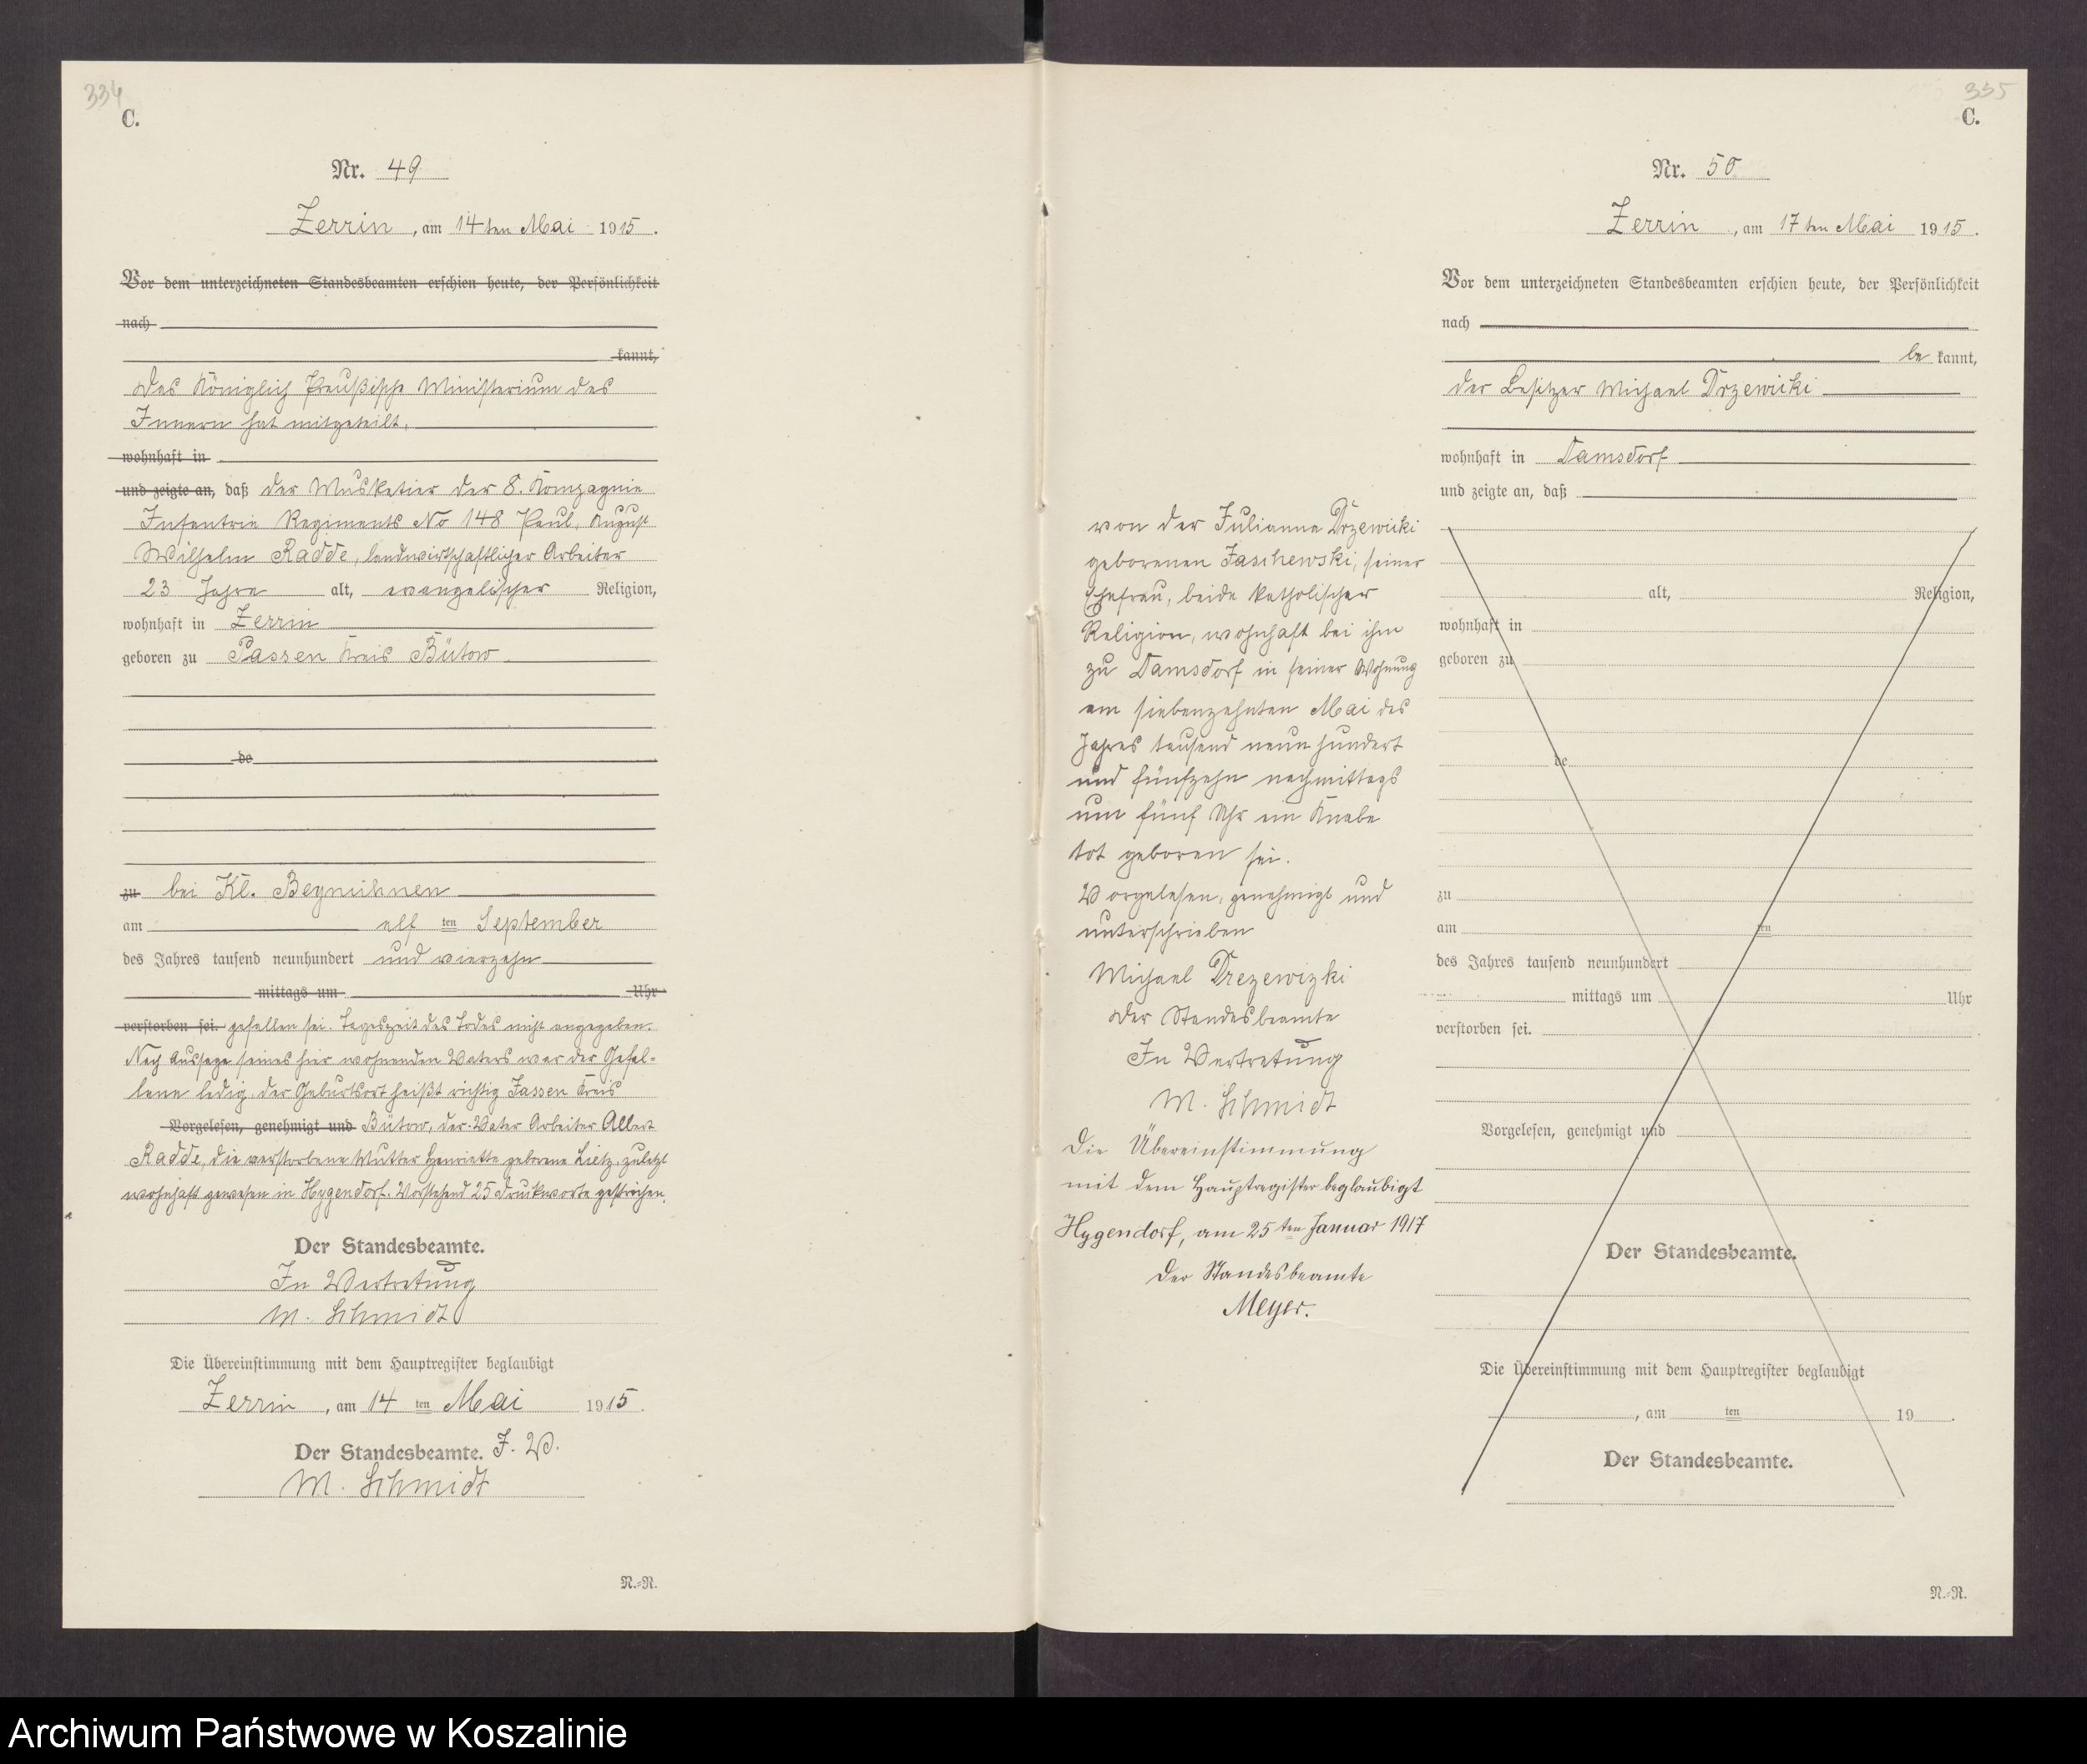 334
C.
Nr. 49
Zerrin, am 14ten Mai 1915.
Vor dem unterzeichneten Standesbeamten erschien heute, der Persönlichkeit
nach
kannt,
Das Königlich Preußische Ministerium des
Innern hat mitgeteilt,
wohnhaft in
und zeigte an, daß der Musketier der 8. Kompagnie
Infantrie Regiments No 148 Paul, August
Wilhelm Radde, landwirtschaftlicher Arbeiter
23 Jahre alt, evangelischer Religion,
wohnhaft in Zerrin
geboren zu Passen Kreis Bütow
de
zu bei Kl. Beynuhnen
am elf ten September
des Jahres tausend neunhundert und vierzehn
mittags um Uhr
verstorben sei. gefallen sei. Tageszeit des Todes nicht angegeben.
Nach Aussage seines hier wohnenden Vaters war der Gefal-
lene ledig, der Geburtsort heißt richtig Jassen Kreis
Vorgelesen, genehmigt und Bütow, der Vater Arbeiter Albert
Radde, die verstorbene Mutter Henriette geborene Lietz, zuletzt
wohnhaft gewesen in Hygendorf. Vorstehend 25 Druckworte gestrichen.
Der Standesbeamte.
In Vertretung
M. Schmidt
Die Übereinstimmung mit dem Hauptregister beglaubigt
Zerrin, am 14 ten Mai 1915.
Der Standesbeamte. J. V.
M. Schmidt
N.-N.
335
C.
Nr. 50
Zerrin, am 17ten Mai 1915.
Vor dem unterzeichneten Standesbeamten erschien heute, der Persönlichkeit
nach
be kannt,
der Besitzer Michael Drzewicki
wohnhaft in Damsdorf
und zeigte an, daß
von der Julianna Drzewicki
geborenen Jaschewski, seiner
Ehefrau, beide katholischer
Religion, wohnhaft bei ihm
zu Damsdorf in seiner Wohnung
am siebenzehnten Mai des
Jahres tausend neun hundert
und fünfzehn nachmittags
um fünf Uhr ein Knabe
tot geboren sei.
Vorgelesen, genehmigt und
unterschrieben
Michael Drezewizki
Der Standesbeamte
In Vertretung
M. Schmidt
Die Übereinstimmung
mit dem Hauptregister beglaubigt
Hygendorf, am 25ten Januar 1917
Der Standesbeamte
Meyer.
alt, Religion,
wohnhaft in
geboren zu
de
zu
am ten
des Jahres tausend neunhundert
mittags um Uhr
verstorben sei.
Vorgelesen, genehmigt und
Der Standesbeamte.
Die Übereinstimmung mit dem Hauptregister beglaubigt
, am ten 19 .
Der Standesbeamte.
N.-N.
Archiwum Państwowe w Koszalinie